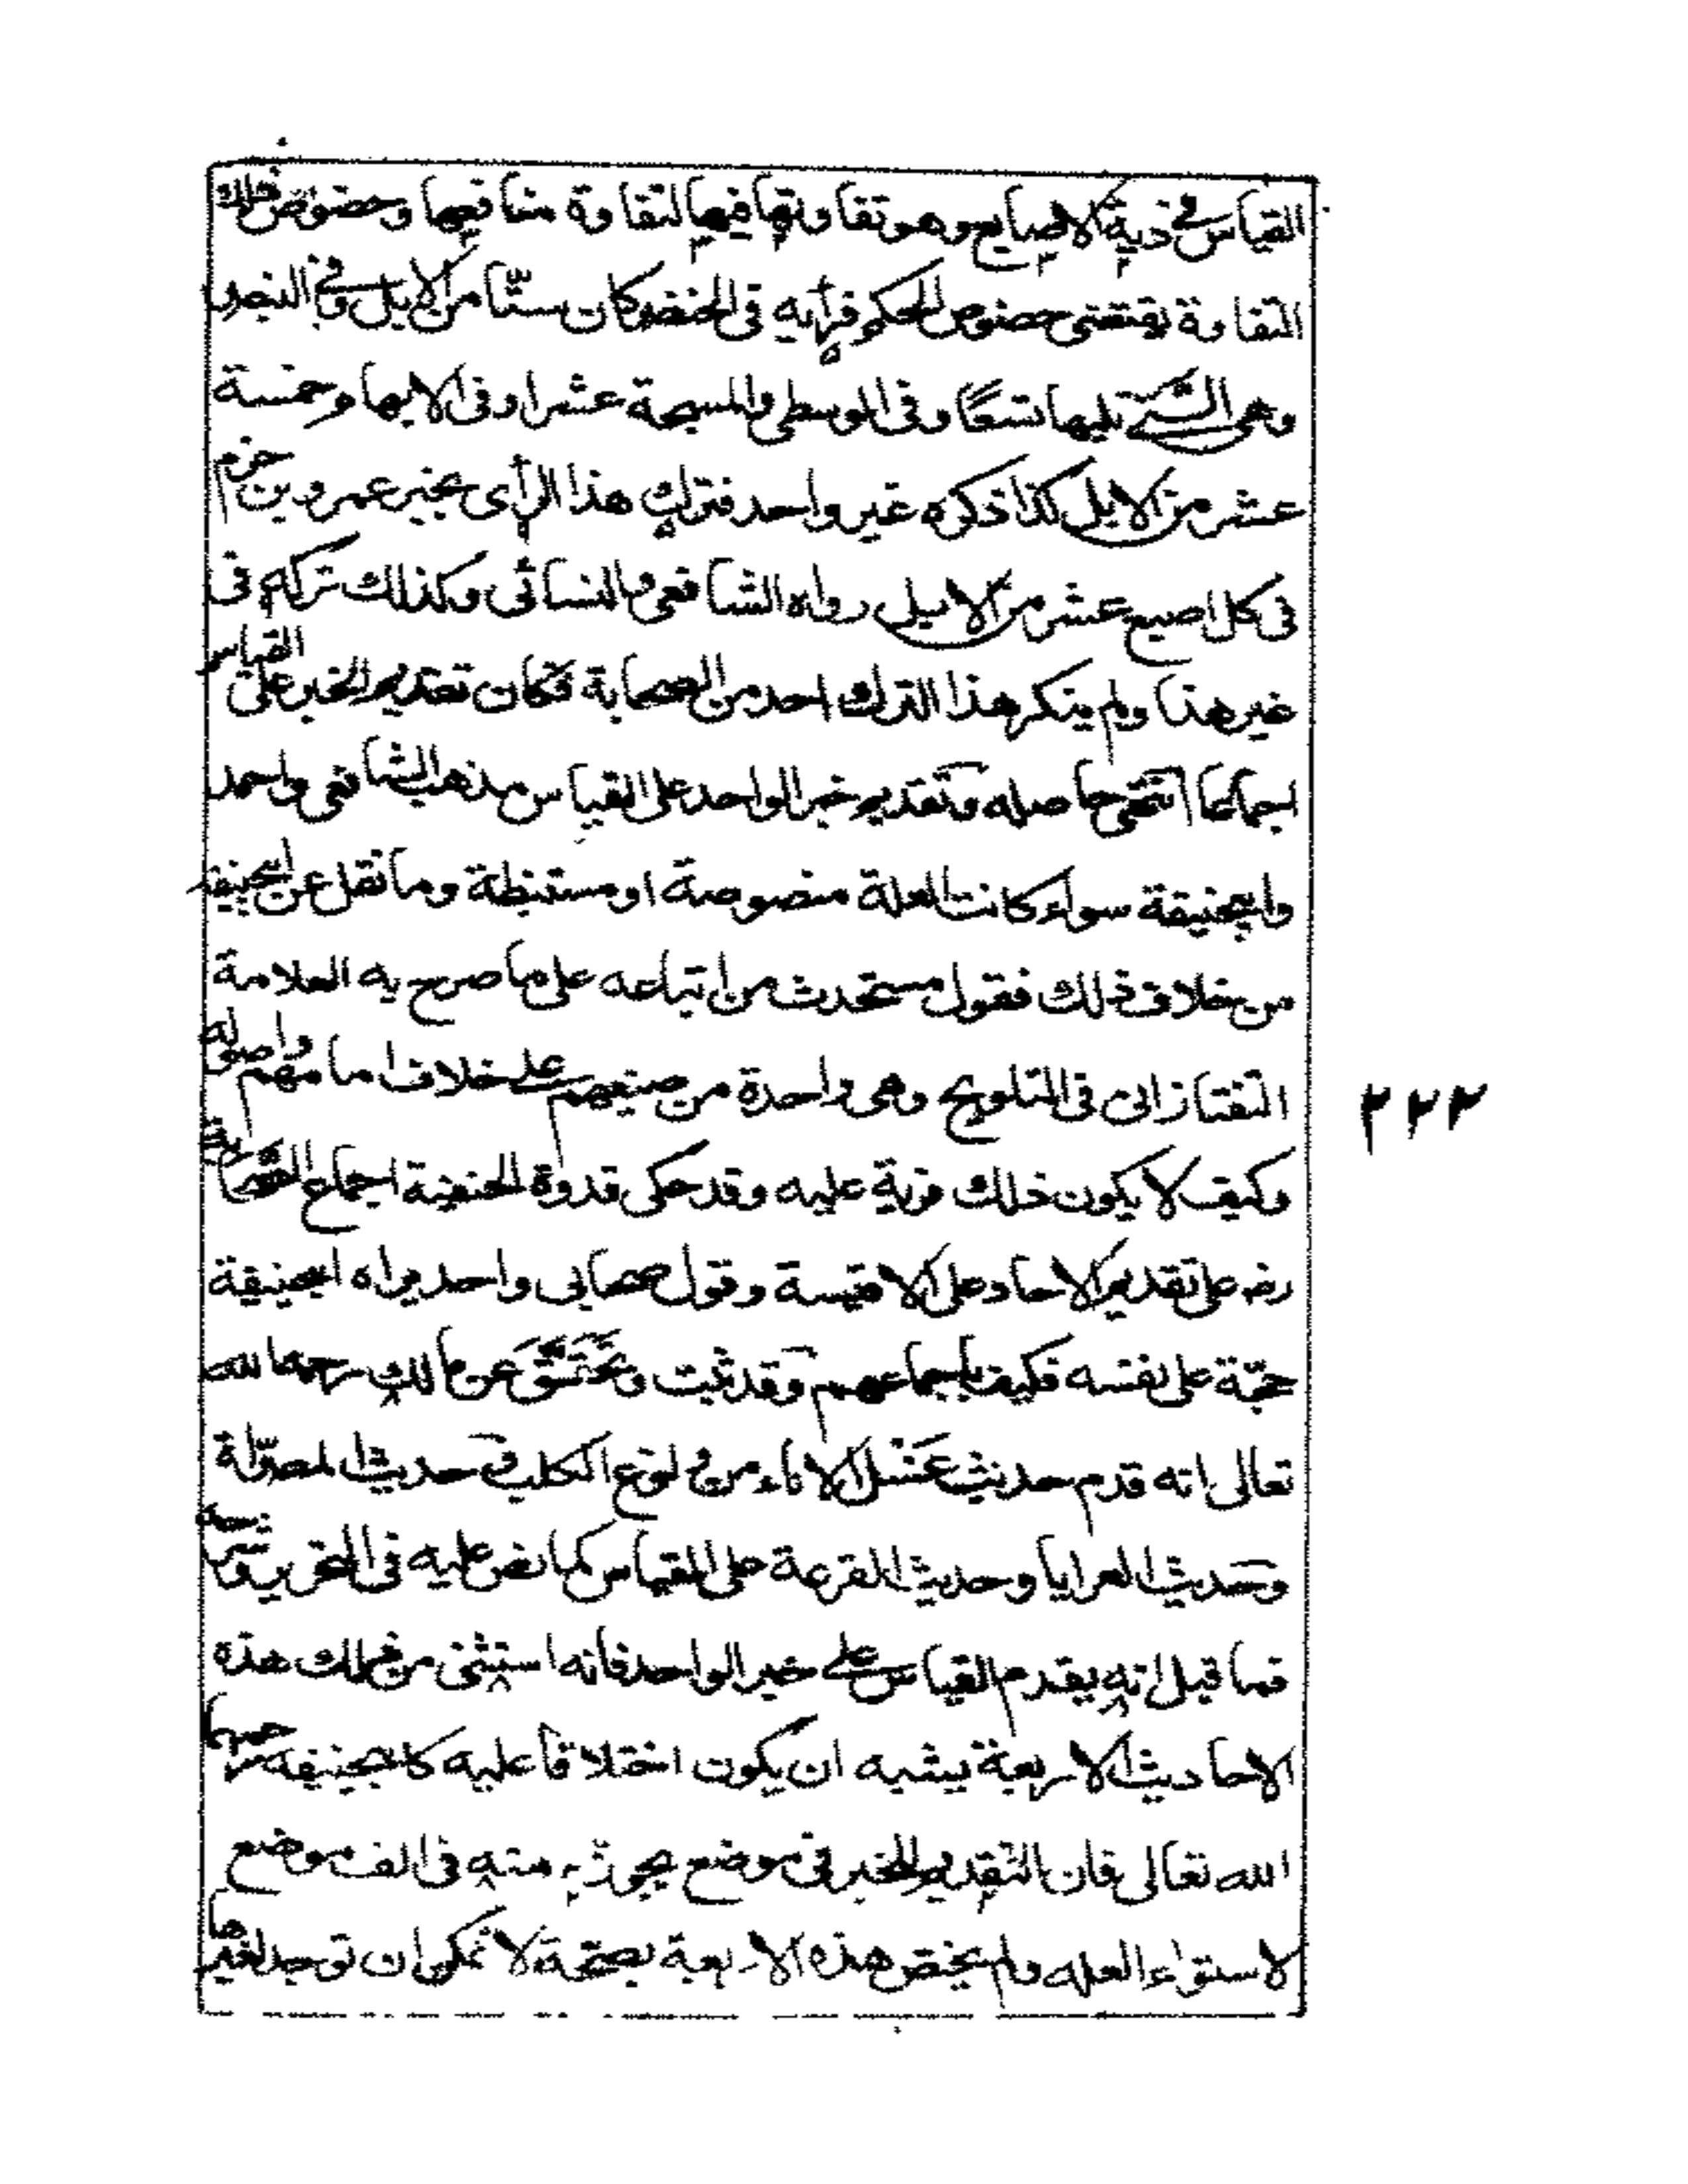 القياس في دية الاصابع وهو تفاوتها فيها لتفاوة منافعها وخصوص ذلك
التفاوة يقتضى خصوص الحكم فرأيه فى الخنصر كان ستّا من الابل وفي البنصر
وهي التي تليها تسعًا وفى الوسطى والمسبحة عشرا وفى الابهام وخمسة
عشر من الابل كذا ذكره غير واحد فترك هذا الرأى بخبر عمرو بن حزم
فى كل اصبع عشر من الابل رواه الشافعى والنسائى وكذلك تركه فى
غير هذا ولم ينكر هذا الترك احد من الصحابة فكان تقديم الخبر على القياس
اجماعًا انتهى حاصله وتقديم خبر الواحد على القياس مذهب الشافعى واحمد
وابيحنيفة سواء كانت العلة منصوصة او مستنبطة وما نقل عن ابيحنيفة
من خلاف ذلك فقول مستحدث من اتباعه على ما صرح به العلامة
التفتازانى فى التلويح وهى واحدة من صنيعهم على خلاف امامهم واصوله
٢٢٢
وكيف لا يكون ذلك فرية عليه وقد حكى قدوة الحنفية اجماع الصحابة
رضـ على تقديم الاحاد على الاقيسة وقول صحابى واحد يراه ابيحنيفة
حجّة على نفسه فكيف باجماعهم وقد ثبت وتحقق عن مالك رحمه الله
تعالى انه قدم حديث غَسْل الاناء من ولوغ الكلب فى حديث المصرّاة
وحديث العرايا وحديث القرعة على القياس كما نص عليه فى التحرير وشرحه
فما قيل انه يقدم القياس على خبر الواحد فانه استثنى من ذلك هذه
الاحاديث الاربعة يشبه ان يكون اختلاقاً عليه كابيحنيفه رحمهما
الله تعالى فان التقديم للخبر فى موضع يجوزه منه فى الف موضع
لاستواء العله ولم يختص هذه الاربعة بصحّة لا يمكن ان توجد لغيرها